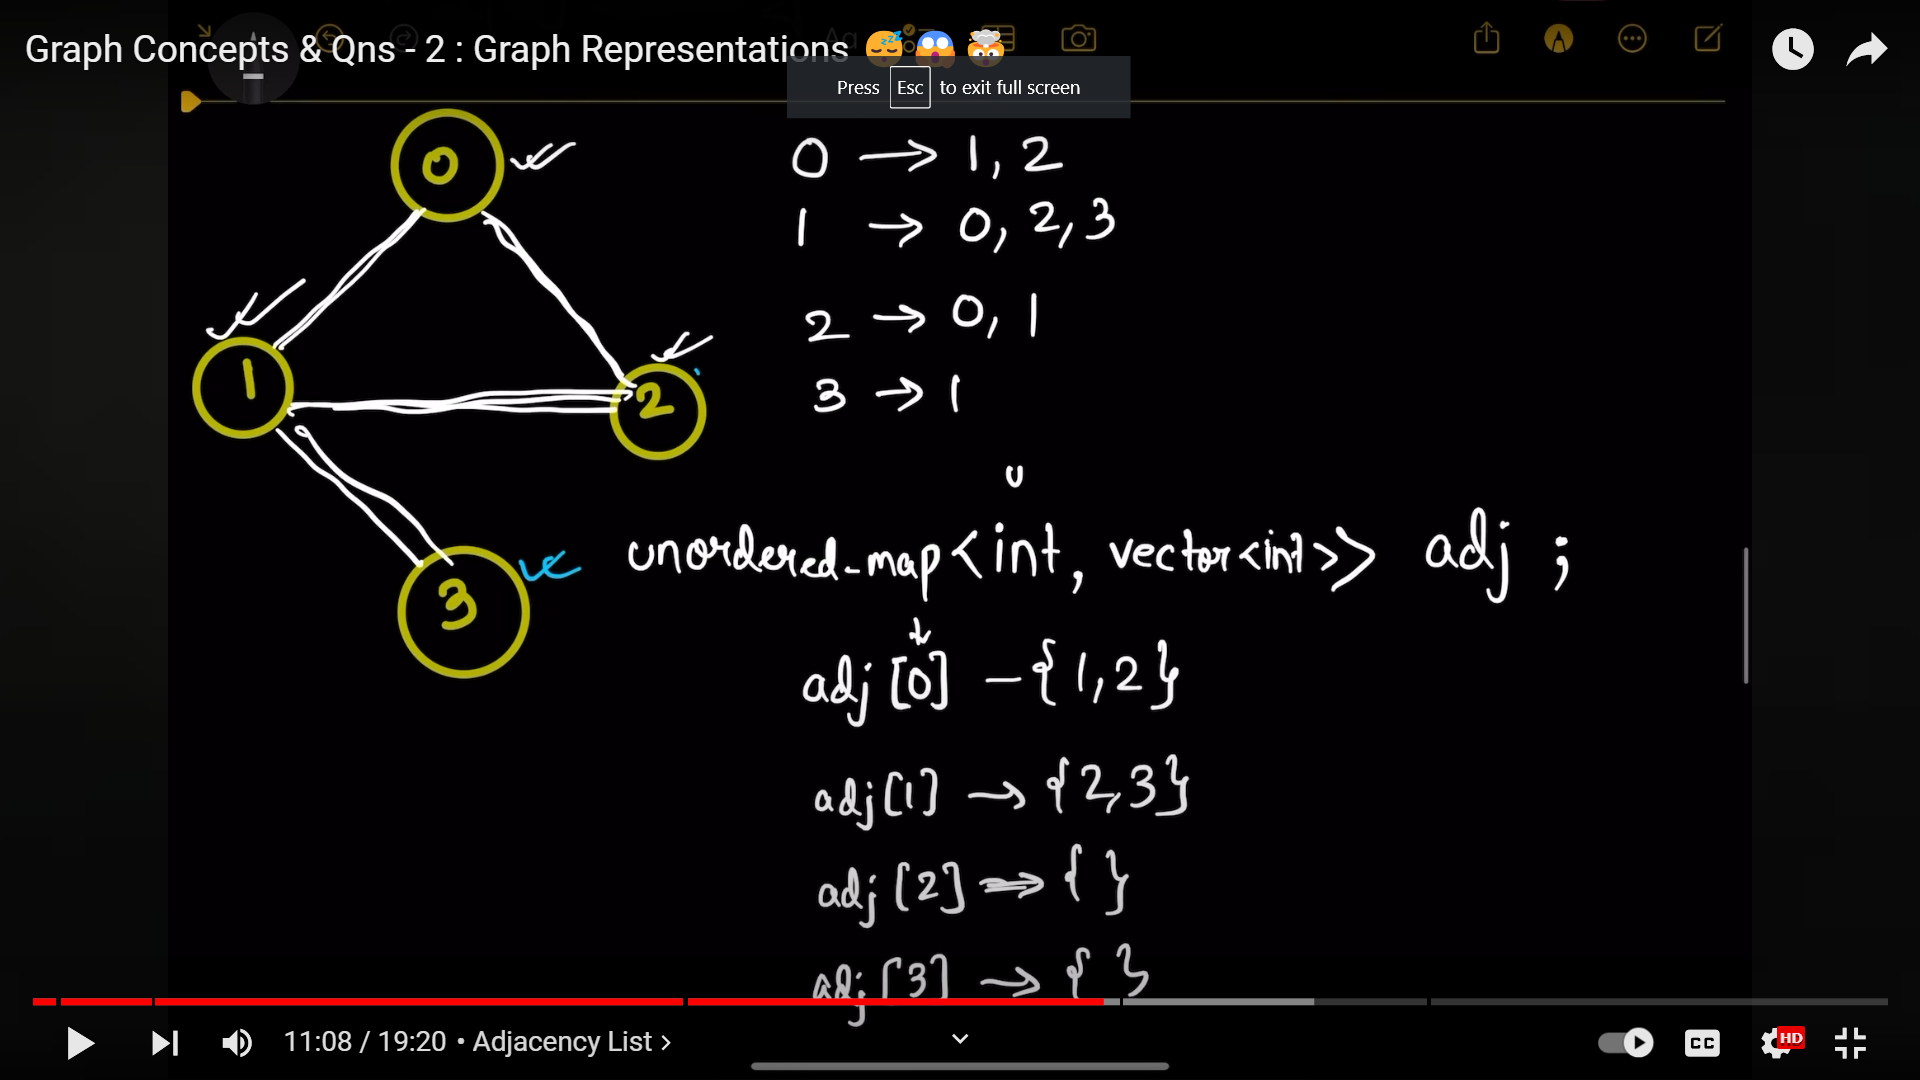 Graph Concepts & Qns - 2 : Graph Representations 😴😱🤯
Press Esc to exit full screen
0 → 1, 2
1 → 0, 2, 3
2 → 0, 1
3 → 1
0
1
2
3
υ
unordered_map<int, vector<int>> adj ;
adj [0] - {1,2}
adj[1] → {2,3}
adj [2] → { }
adj [3] → { }
11:08 / 19:20 • Adjacency List >
CC
HD